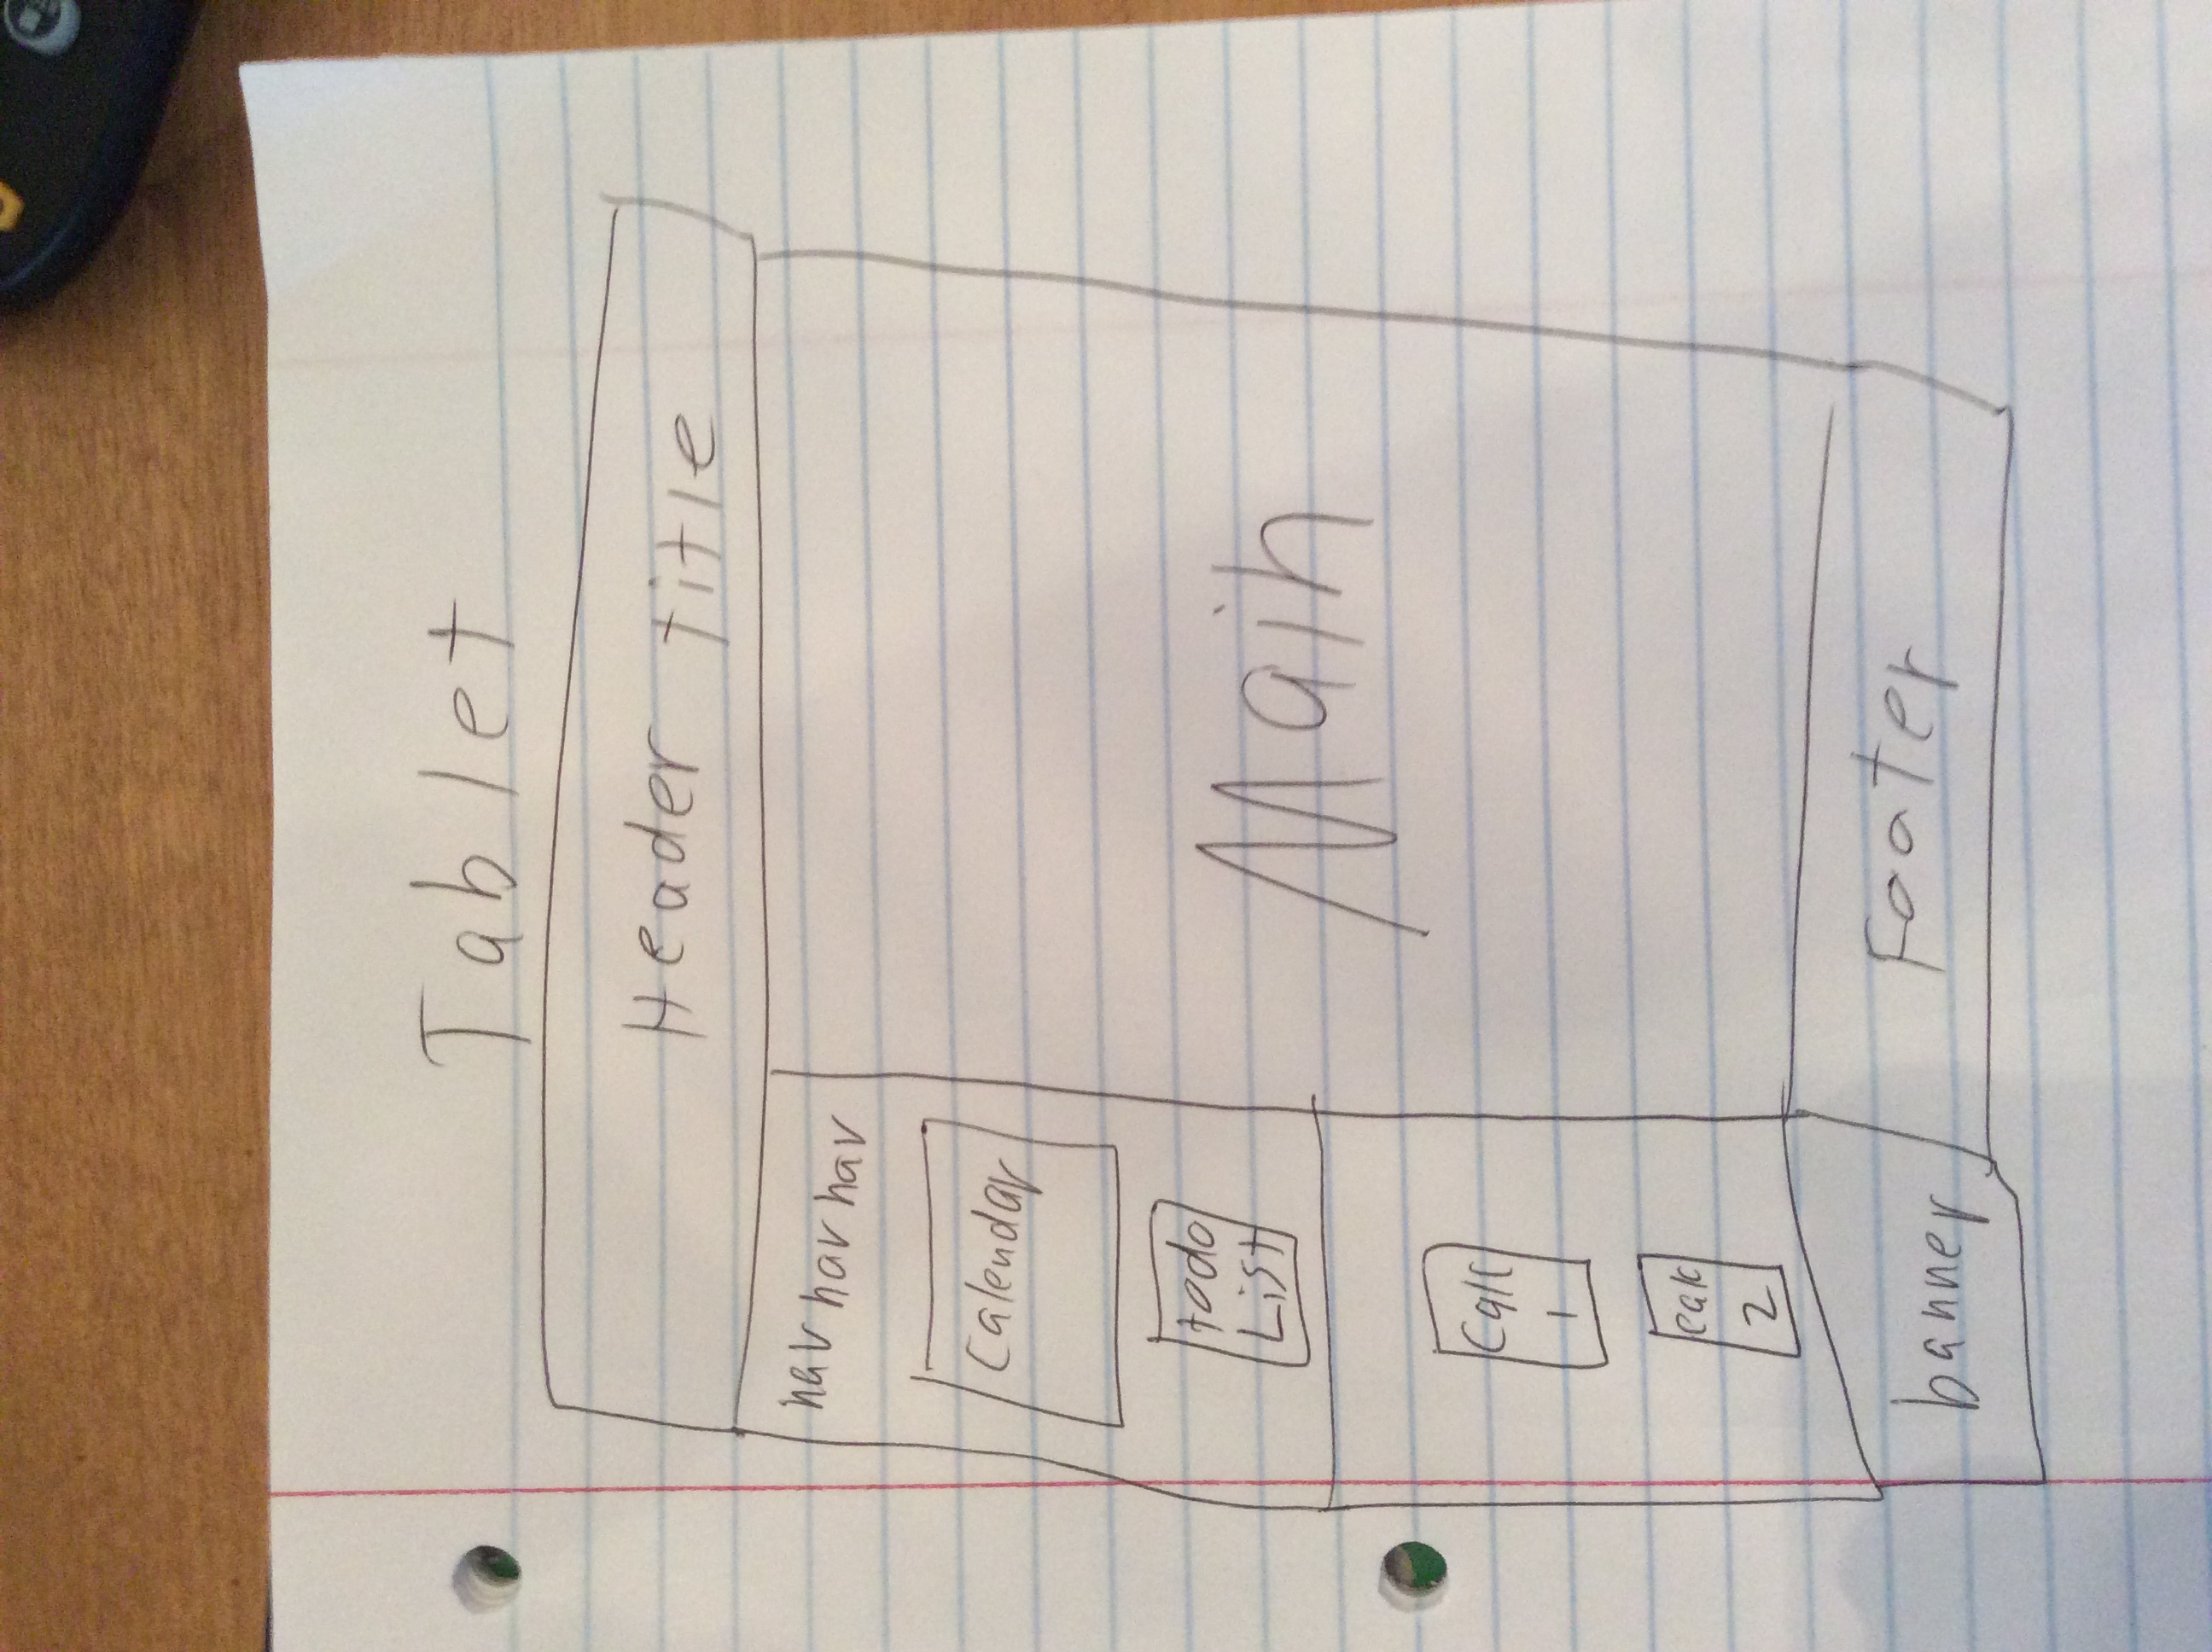 Tablet
Header title
nav nav nav
Calendar
todo
List
Main
Calc
1
calc
2
banner
Footer